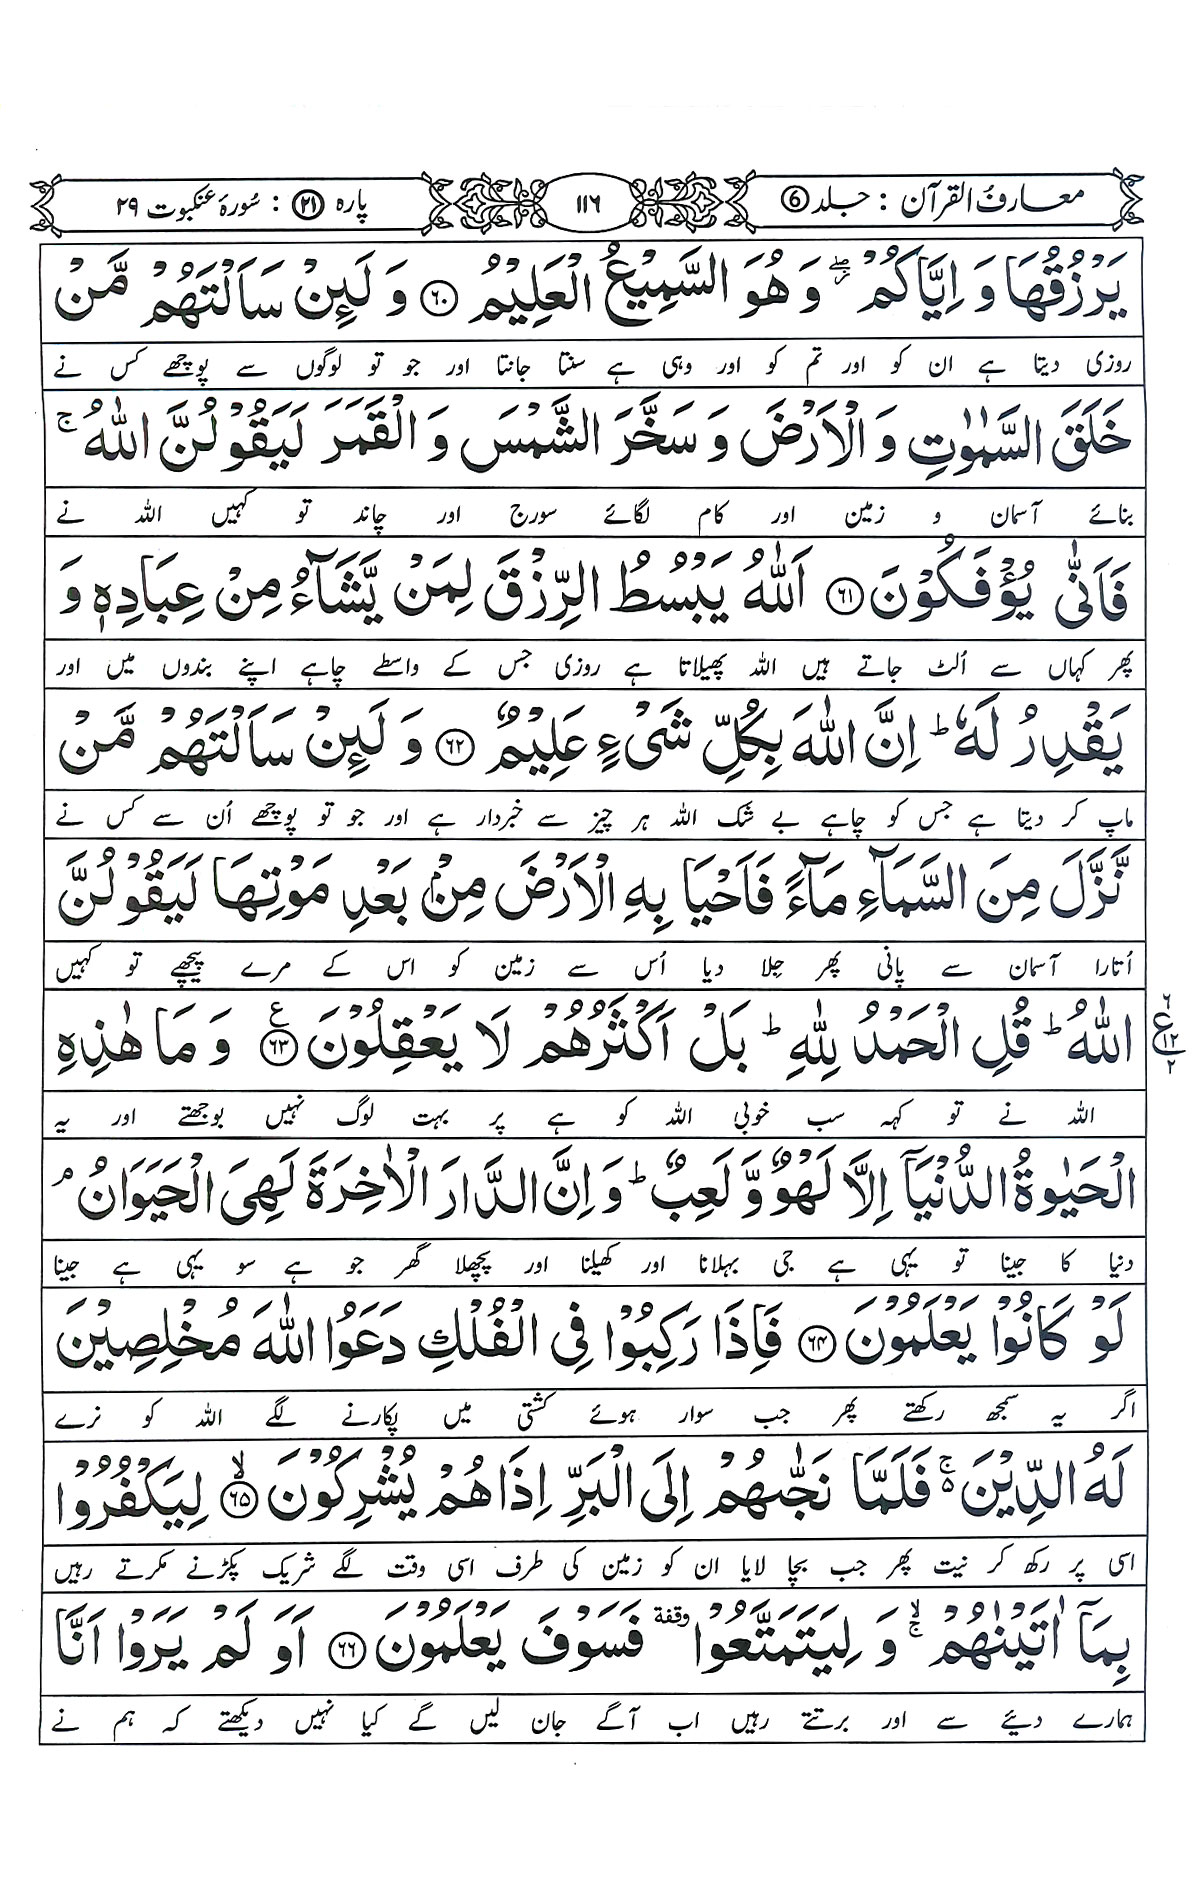 معارف القرآن : جلد ۶
۱۱۶
پارہ ۲۱ : سُورۂ عنکبوت ۲۹
يَرْزُقُهَا وَ اِيَّاكُمْ ۖ وَ هُوَ السَّمِيْعُ الْعَلِيْمُ ﴿۶۰﴾ وَ لَىِٕنْ سَاَلْتَهُمْ مَّنْ
روزی دیتا ہے ان کو اور تم کو اور وہی ہے سنتا جانتا اور جو تو لوگوں سے پوچھے کس نے
خَلَقَ السَّمٰوٰتِ وَ الْاَرْضَ وَ سَخَّرَ الشَّمْسَ وَ الْقَمَرَ لَيَقُوْلُنَّ اللّٰهُ ۚ
بنائے آسمان و زمین اور کام لگائے سورج اور چاند تو کہیں اللہ نے
فَاَنّٰى يُؤْفَكُوْنَ ﴿۶۱﴾ اَللّٰهُ يَبْسُطُ الرِّزْقَ لِمَنْ يَّشَآءُ مِنْ عِبَادِهٖ وَ
پھر کہاں سے اُلٹ جاتے ہیں اللہ پھیلاتا ہے روزی جس کے واسطے چاہے اپنے بندوں میں اور
يَقْدِرُ لَهٗ ؕ اِنَّ اللّٰهَ بِكُلِّ شَیْءٍ عَلِيْمٌ ﴿۶۲﴾ وَ لَىِٕنْ سَاَلْتَهُمْ مَّنْ
ماپ کر دیتا ہے جس کو چاہے بے شک اللہ ہر چیز سے خبردار ہے اور جو تو پوچھے اُن سے کس نے
نَّزَّلَ مِنَ السَّمَآءِ مَآءً فَاَحْيَا بِهِ الْاَرْضَ مِنْۢ بَعْدِ مَوْتِهَا لَيَقُوْلُنَّ
اُتارا آسمان سے پانی پھر جِلا دیا اُس سے زمین کو اس کے مرے پیچھے تو کہیں
اللّٰهُ ؕ قُلِ الْحَمْدُ لِلّٰهِ ؕ بَلْ اَكْثَرُهُمْ لَا يَعْقِلُوْنَ ﴿۶۳﴾ ع وَ مَا هٰذِهِ
۶ ع ۱۲ ۲
اللہ نے تو کہہ سب خوبی اللہ کو ہے پر بہت لوگ نہیں بوجھتے اور یہ
الْحَيٰوةُ الدُّنْيَاۤ اِلَّا لَهْوٌ وَّ لَعِبٌ ؕ وَ اِنَّ الدَّارَ الْاٰخِرَةَ لَهِیَ الْحَيَوَانُ ۘ
دنیا کا جینا تو یہی ہے جی بہلانا اور کھیلنا اور پچھلا گھر جو ہے سو یہی ہے جینا
لَوْ كَانُوْا يَعْلَمُوْنَ ﴿۶۴﴾ فَاِذَا رَكِبُوْا فِی الْفُلْكِ دَعَوُا اللّٰهَ مُخْلِصِيْنَ
اگر یہ سمجھ رکھتے پھر جب سوار ہوئے کشتی میں پکارنے لگے اللہ کو نرے
لَهُ الدِّيْنَ ۚ۬ فَلَمَّا نَجّٰىهُمْ اِلَى الْبَرِّ اِذَا هُمْ يُشْرِكُوْنَ ﴿۶۵﴾ ۙ لِيَكْفُرُوْا
اسی پر رکھ کر نیت پھر جب بچا لایا ان کو زمین کی طرف اسی وقت لگے شریک پکڑنے مکرتے رہیں
بِمَاۤ اٰتَيْنٰهُمْ ۙۚ وَ لِيَتَمَتَّعُوْا وقفة فَسَوْفَ يَعْلَمُوْنَ ﴿۶۶﴾ اَوَ لَمْ يَرَوْا اَنَّا
ہمارے دیئے سے اور برتتے رہیں اب آگے جان لیں گے کیا نہیں دیکھتے کہ ہم نے